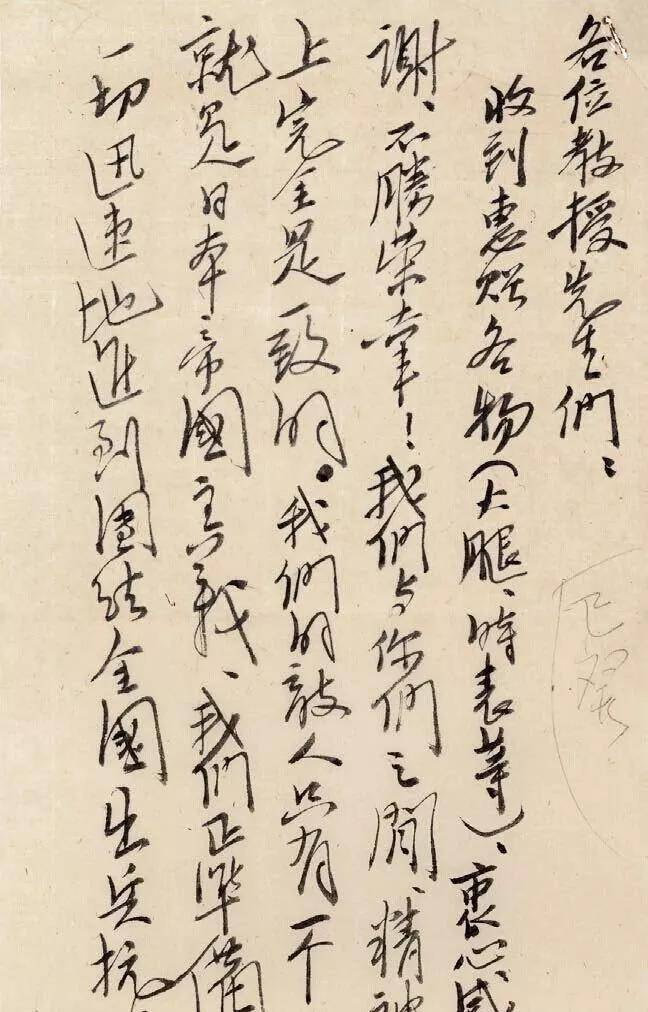 各位教授先生們：
收到惠贈各物（火腿、時表等）、衷心感
謝、不勝榮幸！我們与你們之間、精神
上完全是一致的。我們的敵人只有一个
就是日本帝國主義、我們正準備
一切迅速地進到團結全國出兵抗
已翠